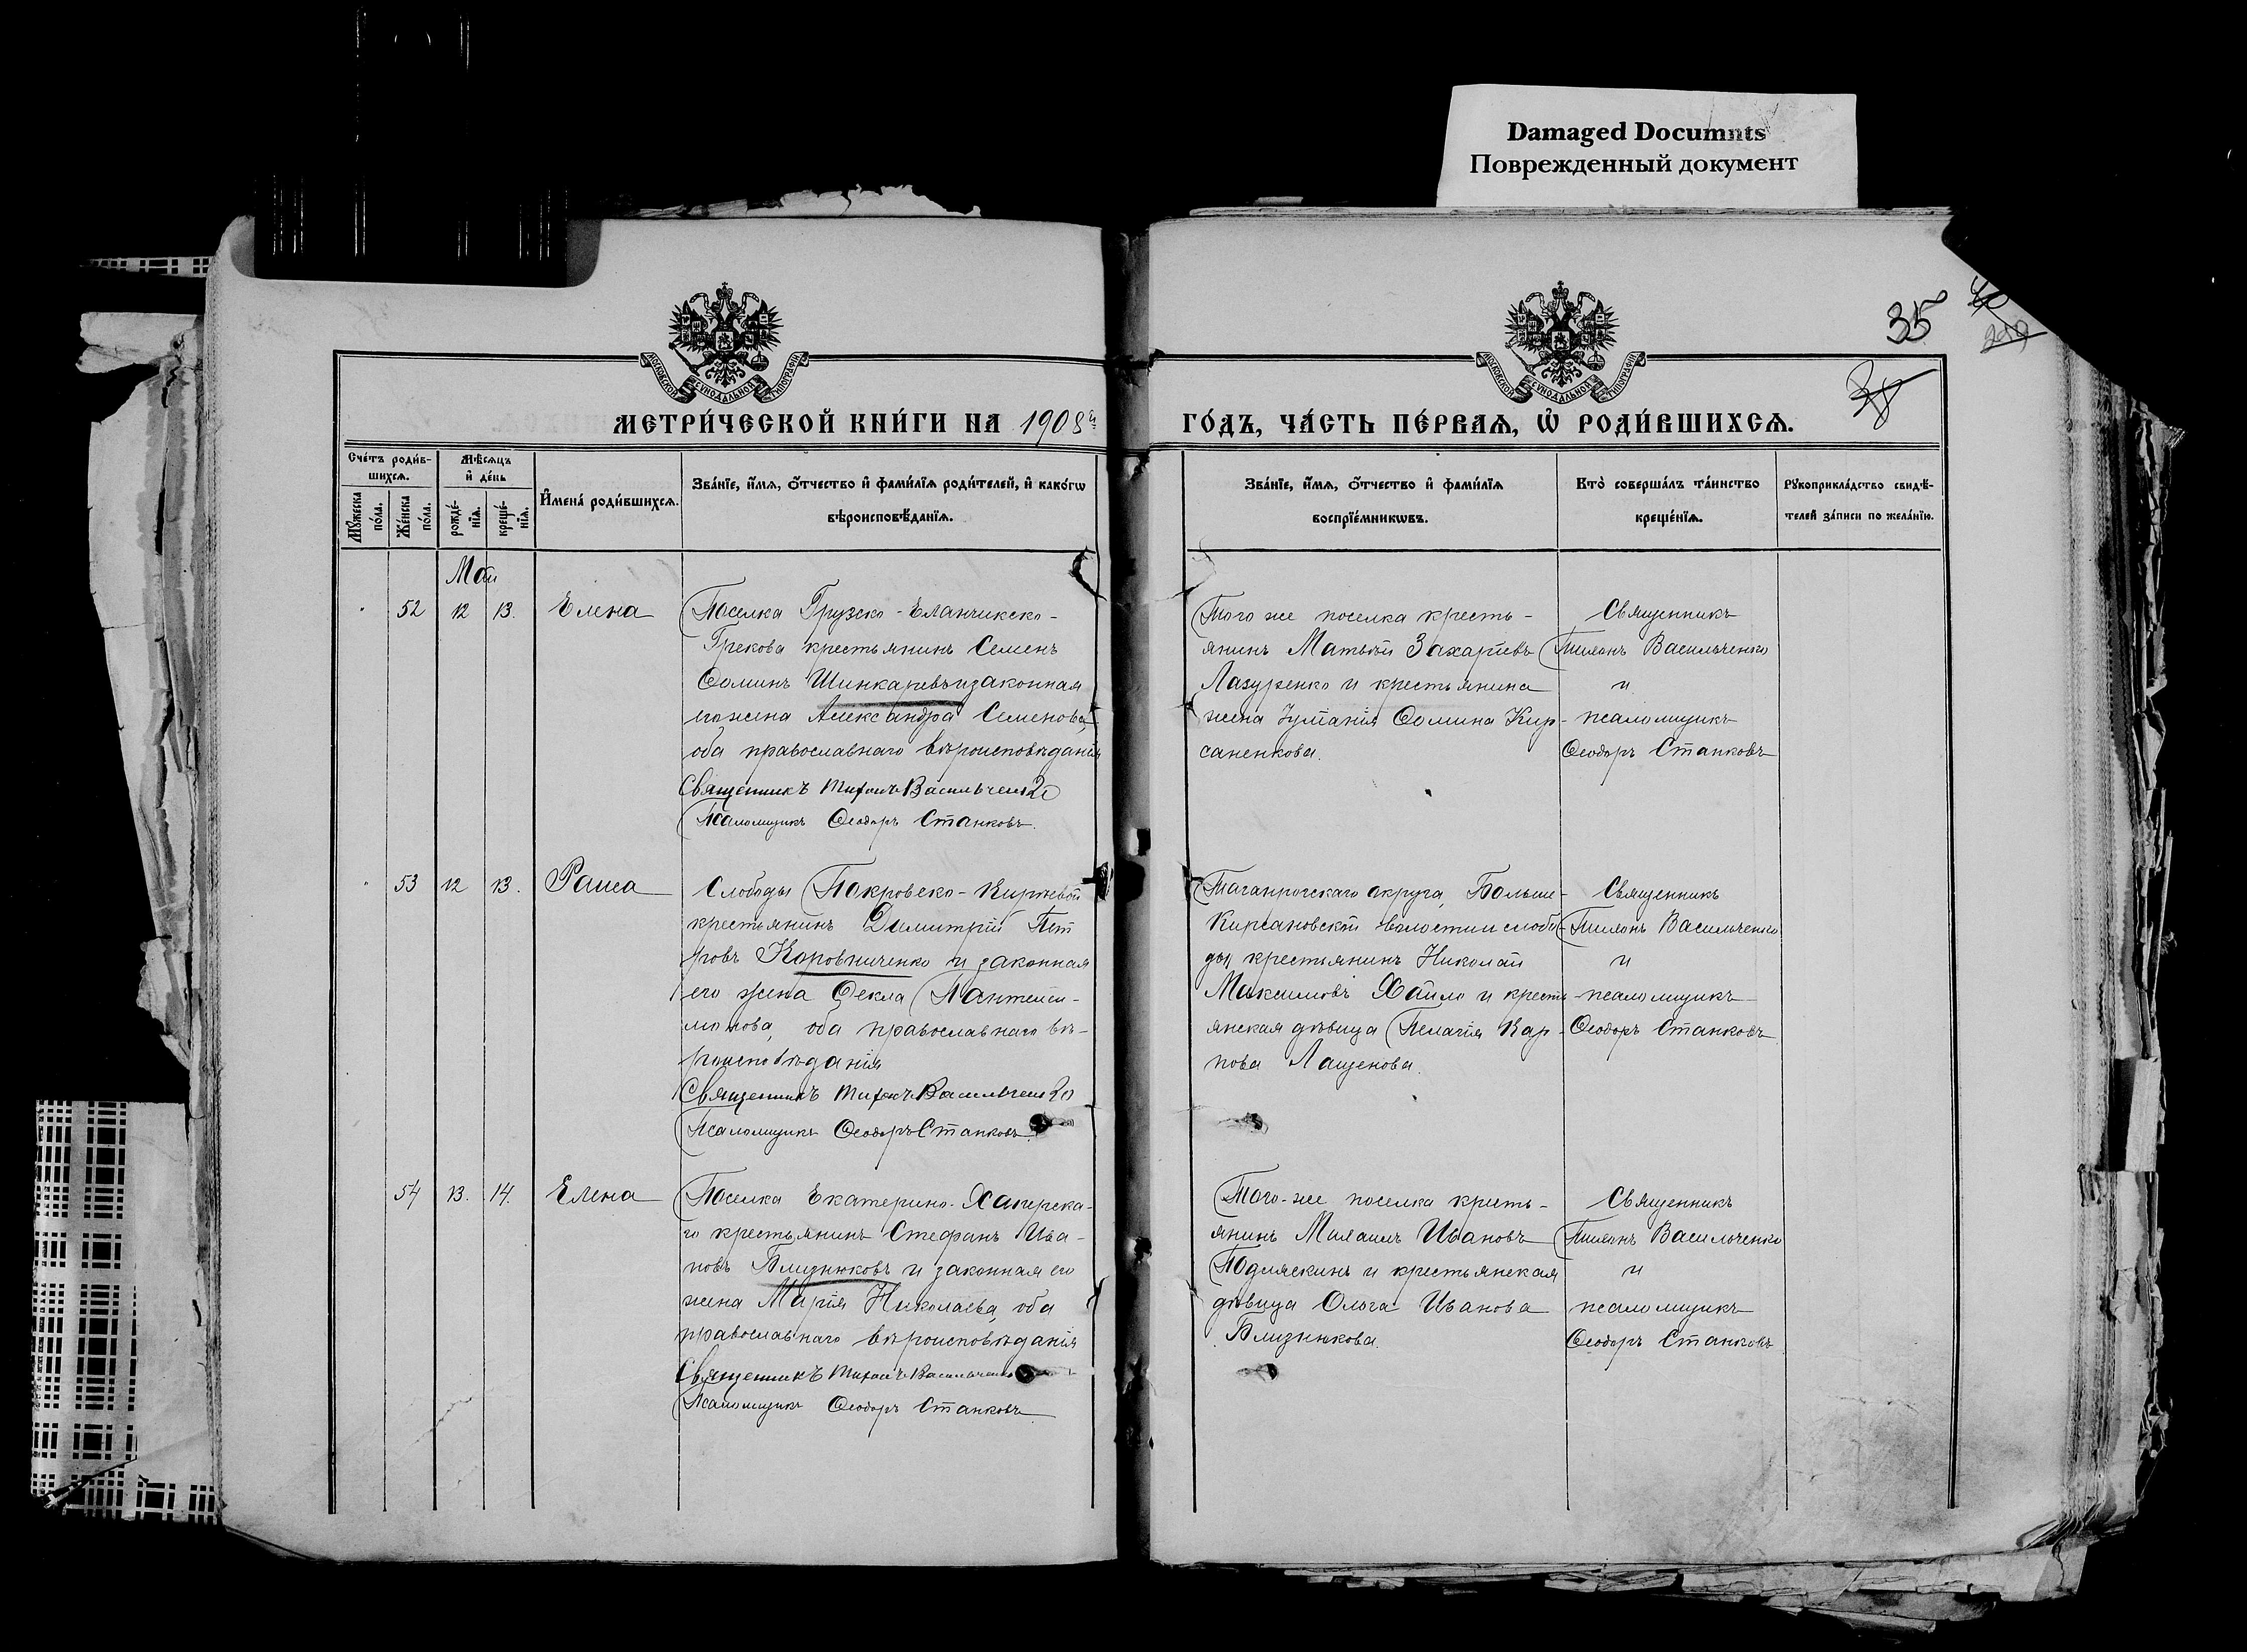 Damaged Documnts
Поврежденный документ
35
МОСКОВСКОЙ СѴНОДАЛЬНОЙ ТИПОГРАФІИ
МОСКОВСКОЙ СѴНОДАЛЬНОЙ ТИПОГРАФІИ
МЕТРИ́ЧЕСКОЙ КНИ́ГИ НА 1908 й
ГО́ДЪ, ЧА́СТЬ ПЕ́РВАѦ, Ѡ РОДИ́ВШИХСѦ.
Сче́тъ роди́в-
шихсѧ.
Мꙋ́жеска по́ла.
Же́нска по́ла.
Мѣ́сѧцъ
и҆ де́нь
рожде́-
нїѧ.
креще́-
нїѧ.
И҆мена̀ роди́вшихсѧ.
Зва́нїе, и҆́мѧ, ѻ҆́тчество и҆ фами́лїѧ роди́телей, и҆ како́гѡ
вѣроисповѣ́данїѧ.
Зва́нїе, и҆́мѧ, ѻ҆́тчество и҆ фами́лїѧ
воспрїе́мникѡвъ.
Кто̀ соверша́лъ та́инство
креще́нїѧ.
Рꙋкоприкла́дство свидѣ́-
телей за́писи по жела́нїю.
Маи
52 12 13. Елена
Поселка Грузско-Еланчикско-
Грекова крестьянинъ Семенъ
Ѳоминъ Шинкаревъ и законная
его жена Александра Семенова,
оба православнаго вѣроисповѣданія
Священникъ Тихонъ Васильченко
Псаломщикъ Ѳеодоръ Станковъ.
Того же поселка кресть-
янинъ Матвѣй Захаріевъ
Лазуренко и крестьянина
жена Іуліанія Ѳомина Кир-
саненкова.
Священникъ
Тихонъ Васильченко
и
псаломщикъ
Ѳеодоръ Станковъ
53 12 13. Раиса
Слободы Покровско-Киреевой
крестьянинъ Димитрій Пет
ровъ Коровниченко и законная
его жена Ѳекла Пантелеи-
монова, оба православнаго вѣ-
роисповѣданія
Священникъ Тихонъ Васильченко
Псаломщикъ Ѳеодоръ Станковъ.
Таганрогскаго округа, Больше-
Кирсановской волости и слобо-
ды крестьянинъ Николай
Максимовъ Хайло и кресть-
янская дѣвица Пелагія Кар-
пова Лащенова.
Священникъ
Тихонъ Васильченко
и
псаломщикъ
Ѳеодоръ Станковъ
54 13. 14. Елена
Поселка Екатерино-Хапрска-
го крестьянинъ Стефанъ Ива-
новъ Близнюковъ и законная его
жена Марія Николаева, оба
православнаго вѣроисповѣданія
Священникъ Тихонъ Васильченко
Псаломщикъ Ѳеодоръ Станковъ
Того-же поселка кресть-
янинъ Михаилъ Ивановъ
Подляскинъ и крестьянская
дѣвица Ольга Иванова
Близнюкова.
Священникъ
Тихонъ Васильченко
и
псаломщикъ
Ѳеодоръ Станковъ